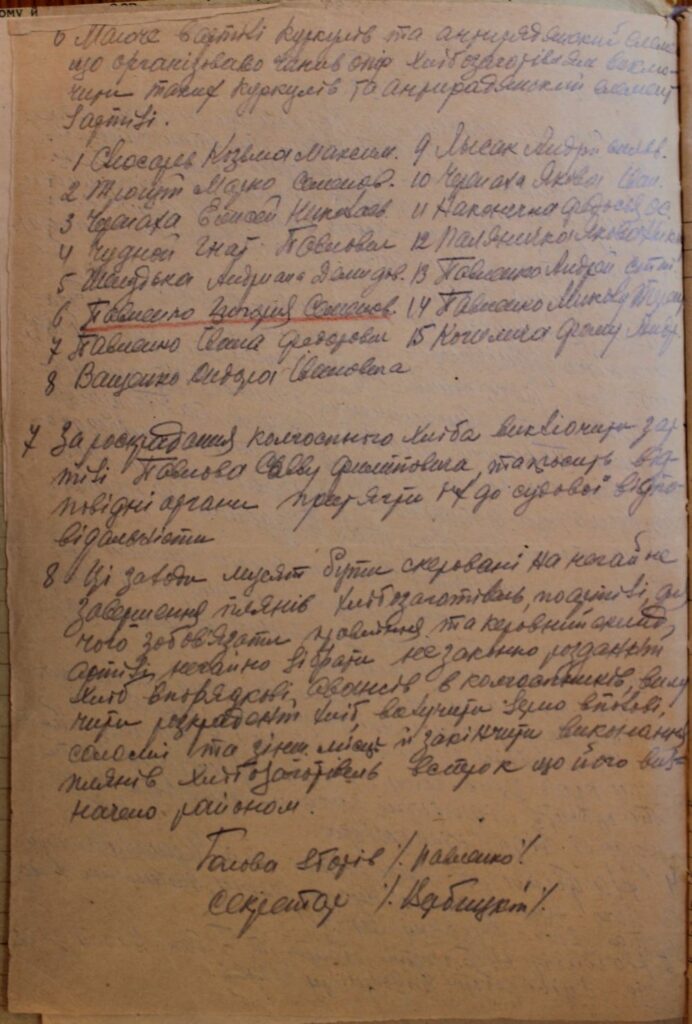 6 Маюче в артілі куркулів та антирадянский елем
що організовано чинив опір хлібозаготівлям виклю-
чити таких куркулів та антирадянский елемент
з артілі.
1 Слюсарь Козьма Максим. 9 Лысак Андрій
2 Мацко Семенов. 10 Черепаха Якова Іван.
3 Черепаха Елисей Николаев 11 Наконечна Федосія
4 Чудной Гнат Павлович 12 Паляничка Якова
5 Андриана Демидов. 13 Павленко Андрій
6 Павленко Григорія Семенов. 14 Павленко Миколу
7 Павленко Івана Федоровича 15
8 Ващенко Андрея Івановича
7 За роскрадання колгоспного хліба виключити з ар
тілі Павлова Савву Филиповича, та просить від
повідні органи притягти їх до судової відпо
відальности
8 Ці заводи мусять бути скеровані на негайне
завершення плянів хлібозаготівель, по артілі, для
чого зобов'язати правління та керовничий склад
артілі негайно зібрати незаконно розданий
хліб в порядкові авансів в колгоспників, вилу
чити розкрадений хліб, вилучити зерно в полові,
соломі та інш. місці й закінчити виконання
плянів хлібозаготівель в строк що його виз-
начено районом.
Голова зборів /. Павленко /.
Секретар /. Вербицкий /.